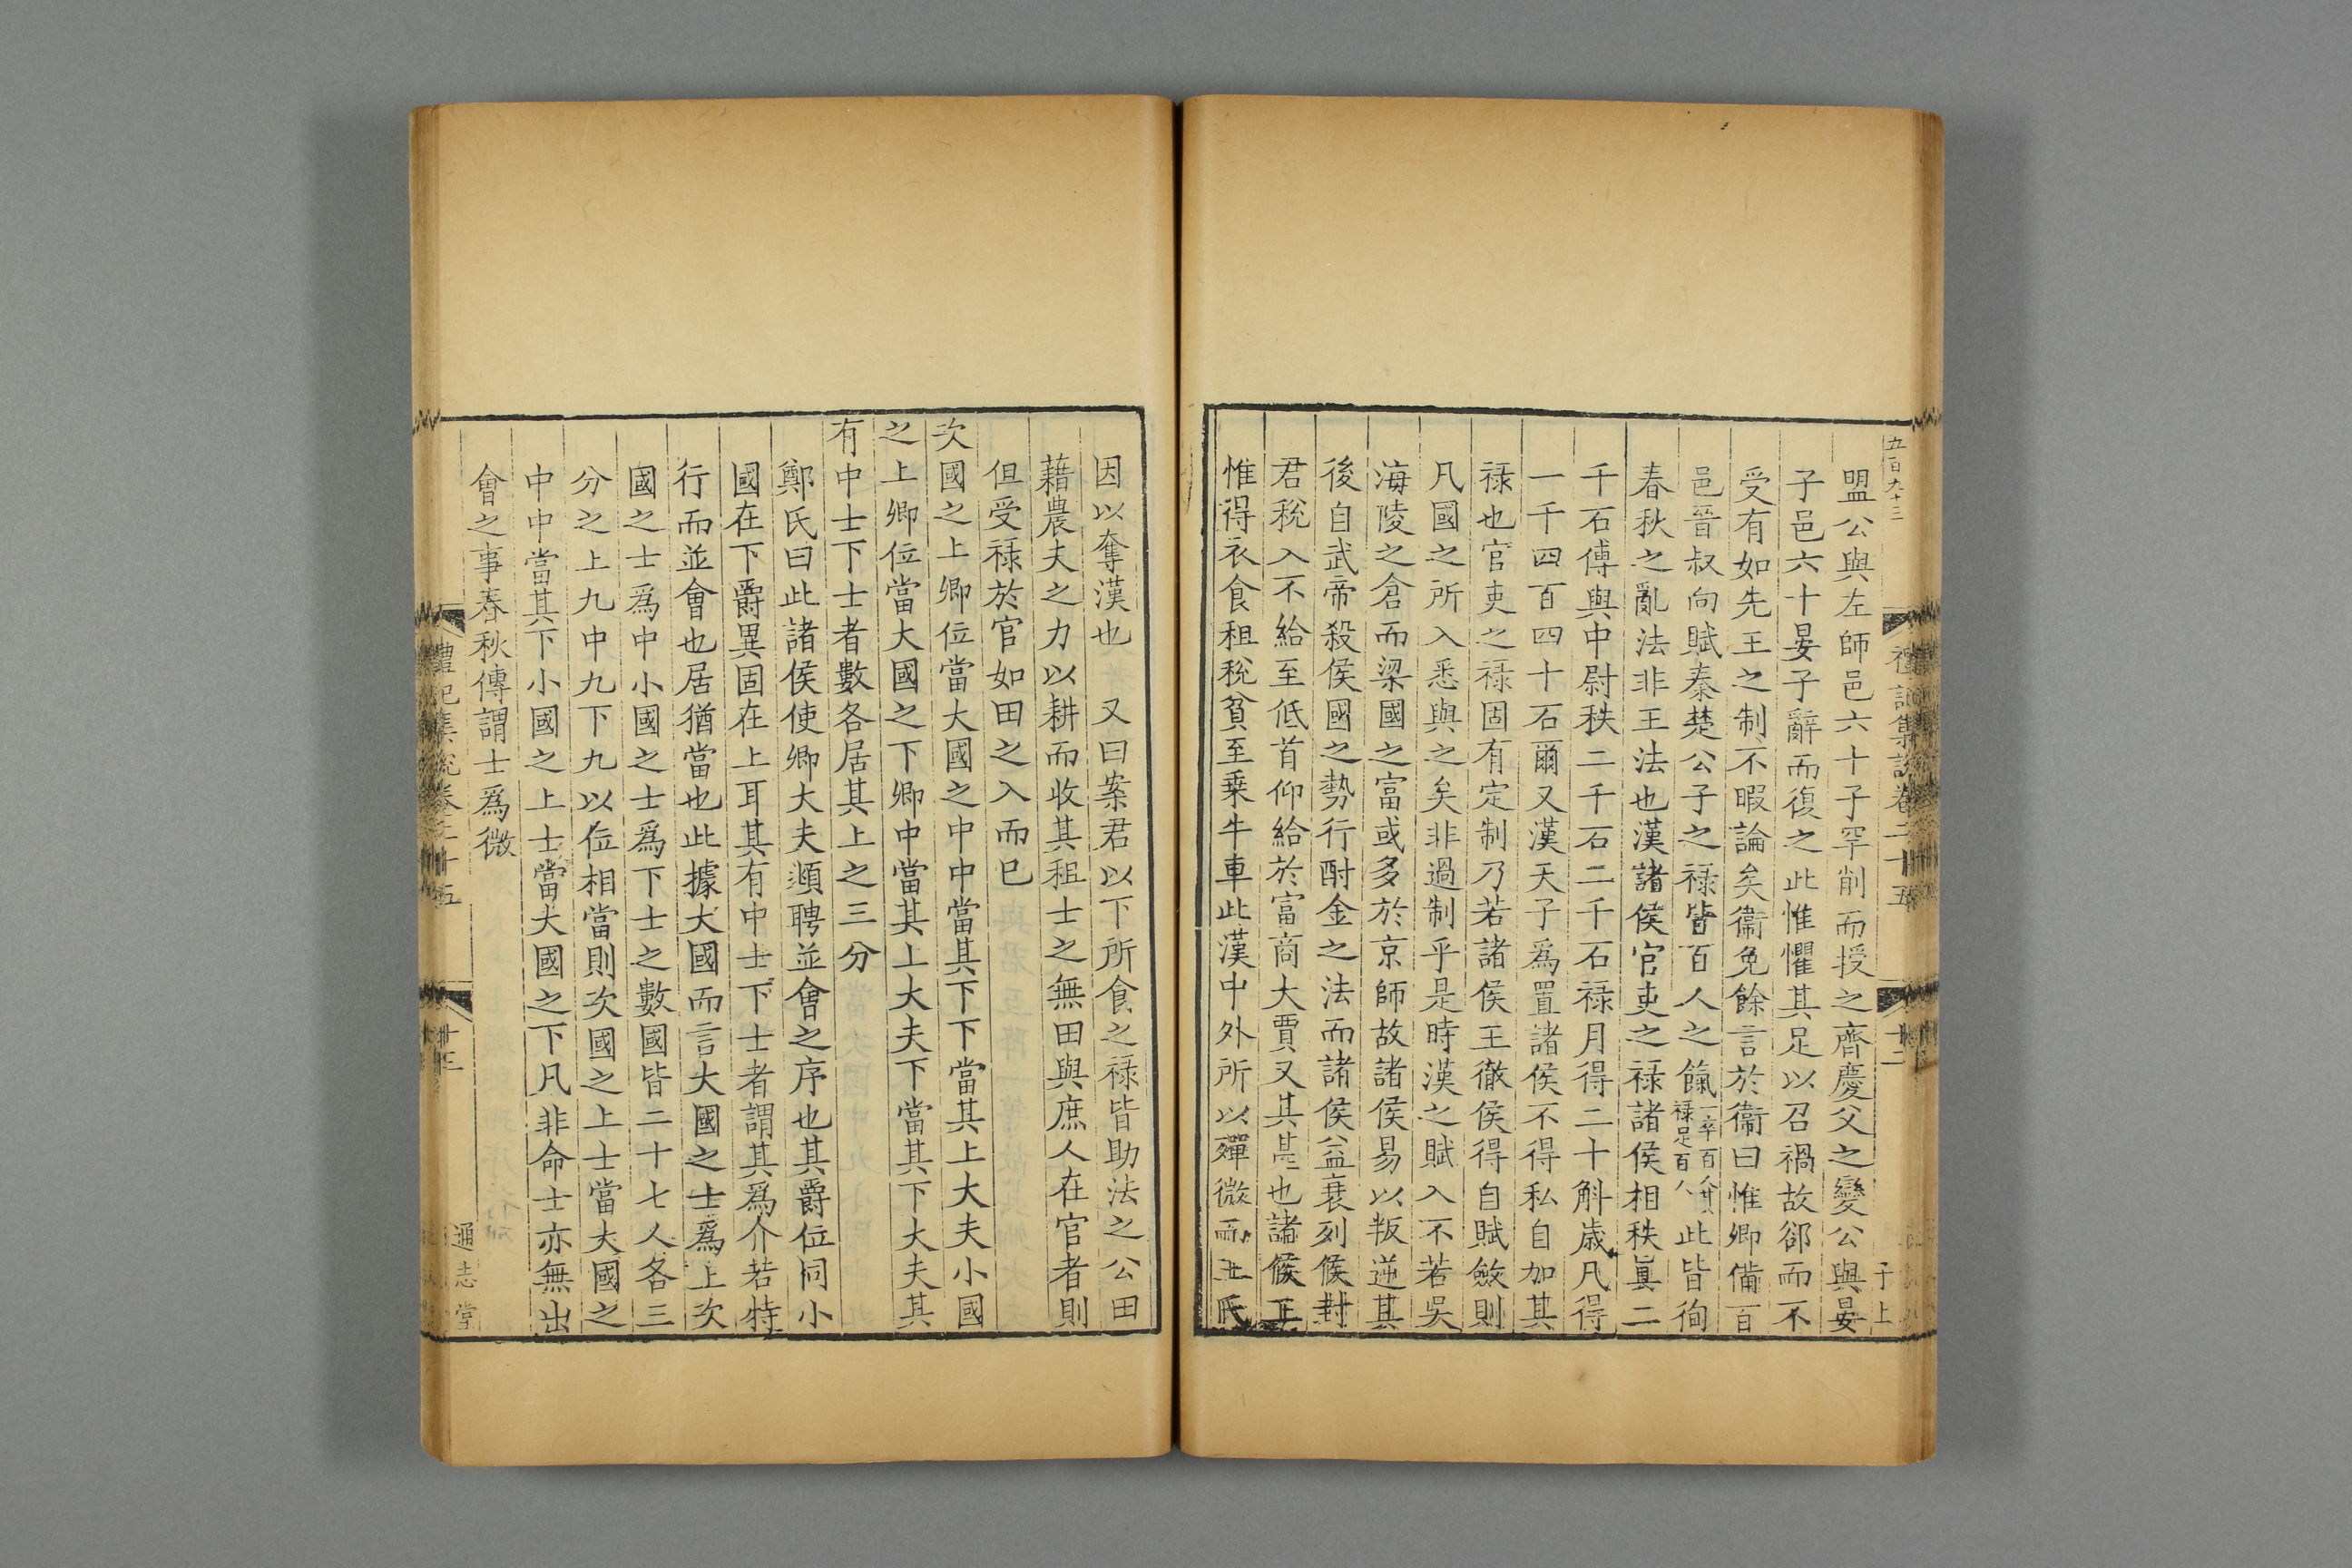 五百九十三
禮記集說卷二十五
十二
于上
盟公與左師邑六十子罕削而授之齊慶父之變公與晏
子邑六十晏子辭而復之此惟懼其足以召禍故郤而不
受有如先王之制不暇論矣衞免餘言於衞曰惟卿備百
邑晉叔向賦秦楚公子之祿皆百人之餼一卒百人其祿足百人此皆徇
春秋之亂法非王法也漢諸侯官吏之祿諸侯相秩真二
千石傅與中尉秩二千石二千石祿月得二十斛歲凡得
一千四百四十石爾又漢天子爲置諸侯不得私自加其
祿也官吏之祿固有定制乃若諸侯王徹侯得自賦斂則
凡國之所入悉與之矣非過制乎是時漢之賦入不若吳
海陵之倉而梁國之富或多於京師故諸侯易以叛逆其
後自武帝殺侯國之勢行酎金之法而諸侯益衰列侯封
君稅入不給至低首仰給於富商大賈又其甚也諸侯王
惟得衣食租稅貧至乗牛車此漢中外所以殫微而王氏
因以奪漢也　又曰案君以下所食之祿皆助法之公田
藉農夫之力以耕而收其租士之無田與庶人在官者則
但受祿於官如田之入而已
次國之上卿位當大國之中中當其下下當其上大夫小國
之上卿位當大國之下卿中當其上大夫下當其下大夫其
有中士下士者數各居其上之三分
鄭氏曰此諸侯使卿大夫頫聘並會之序也其爵位同小
國在下爵異固在上耳其有中士下士者謂其爲介若特
行而並會也居猶當也此據大國而言大國之士爲上次
國之士爲中小國之士爲下士之數國皆二十七人各三
分之上九中九下九以位相當則次國之上士當大國之
中中當其下小國之上士當大國之下凡非命士亦無出
會之事春秋傳謂士爲微
禮記集說卷二十五
十三
通志堂